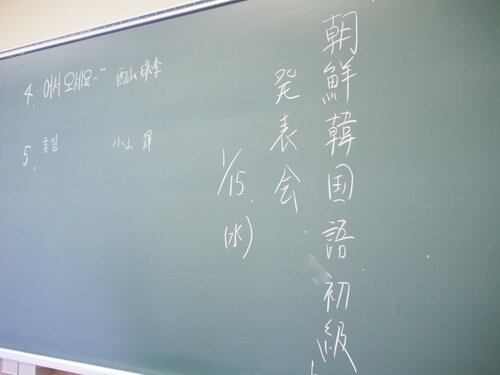 朝鮮韓国語初級
発表会
1/15.(水)
4. 어서 오세요~" 西山
5. 휴일 小山